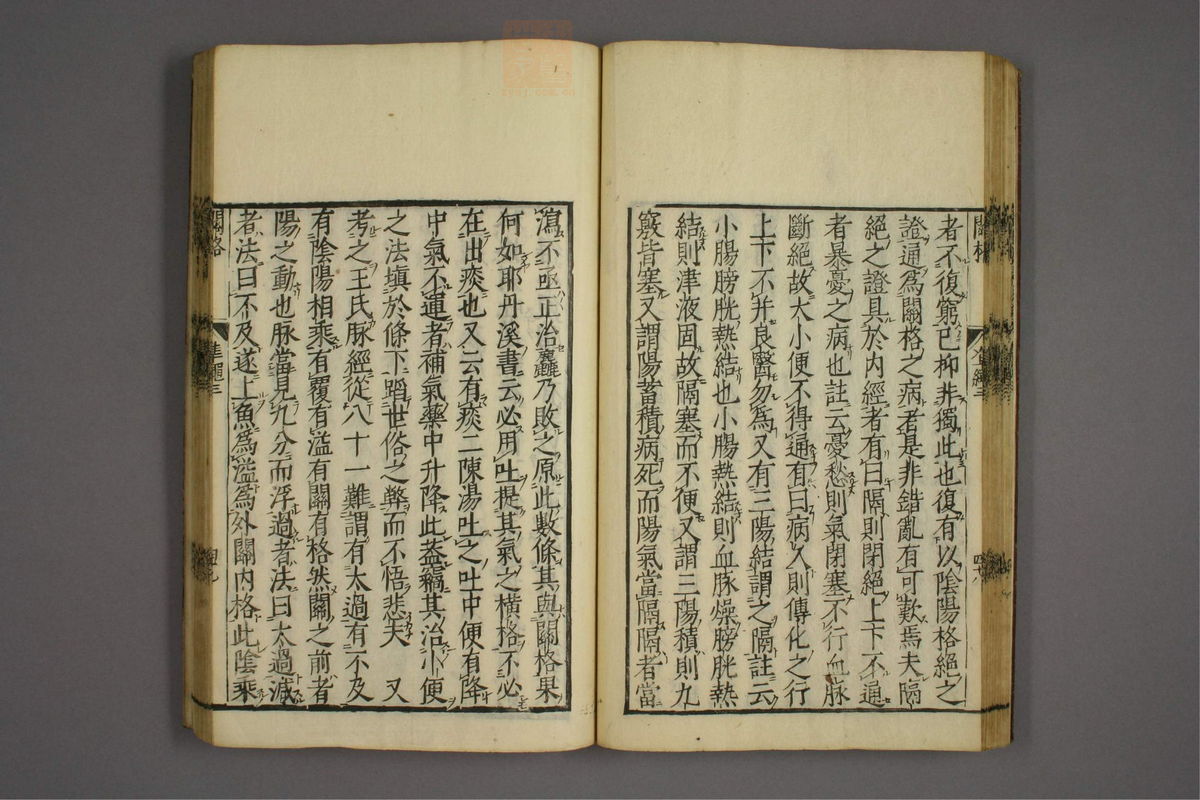 者不復窮已抑非獨此也復有以陰陽格絕之
證通爲關格之病者是非錯亂有可歎焉夫隔
絕之證具於內經者有曰隔則閉絕上下不通
者暴憂之病也註云憂愁則氣閉塞不行血脉
斷絕故大小便不得通有曰病久則傳化之行
上下不并良醫勿爲又有三陽結謂之隔註云
小腸膀胱熱結也小腸熱結則血脉燥膀胱熱
結則津液固故隔塞而不便又謂三陽積則九
竅皆塞又謂陽蓄積病死而陽氣當隔隔者當
瀉不亟正治粗乃敗之原此數條其與關格果
何如耶丹溪書云必用吐提其氣之橫格不必
在出痰也又云有痰二陳湯吐之吐中便有降
中氣不運者補氣藥中升降此蓋竊其治小便
之法填於條下蹈世俗之弊而不悟悲夫 又
考之王氏脉經從八十一難謂有太過有不及
有陰陽相乘有覆有溢有關有格然關之前者
陽之動也脉當見九分而浮過者法曰太過減
者法曰不及遂上魚爲溢爲外關內格此陰乘
關格
四九
關格
四十八